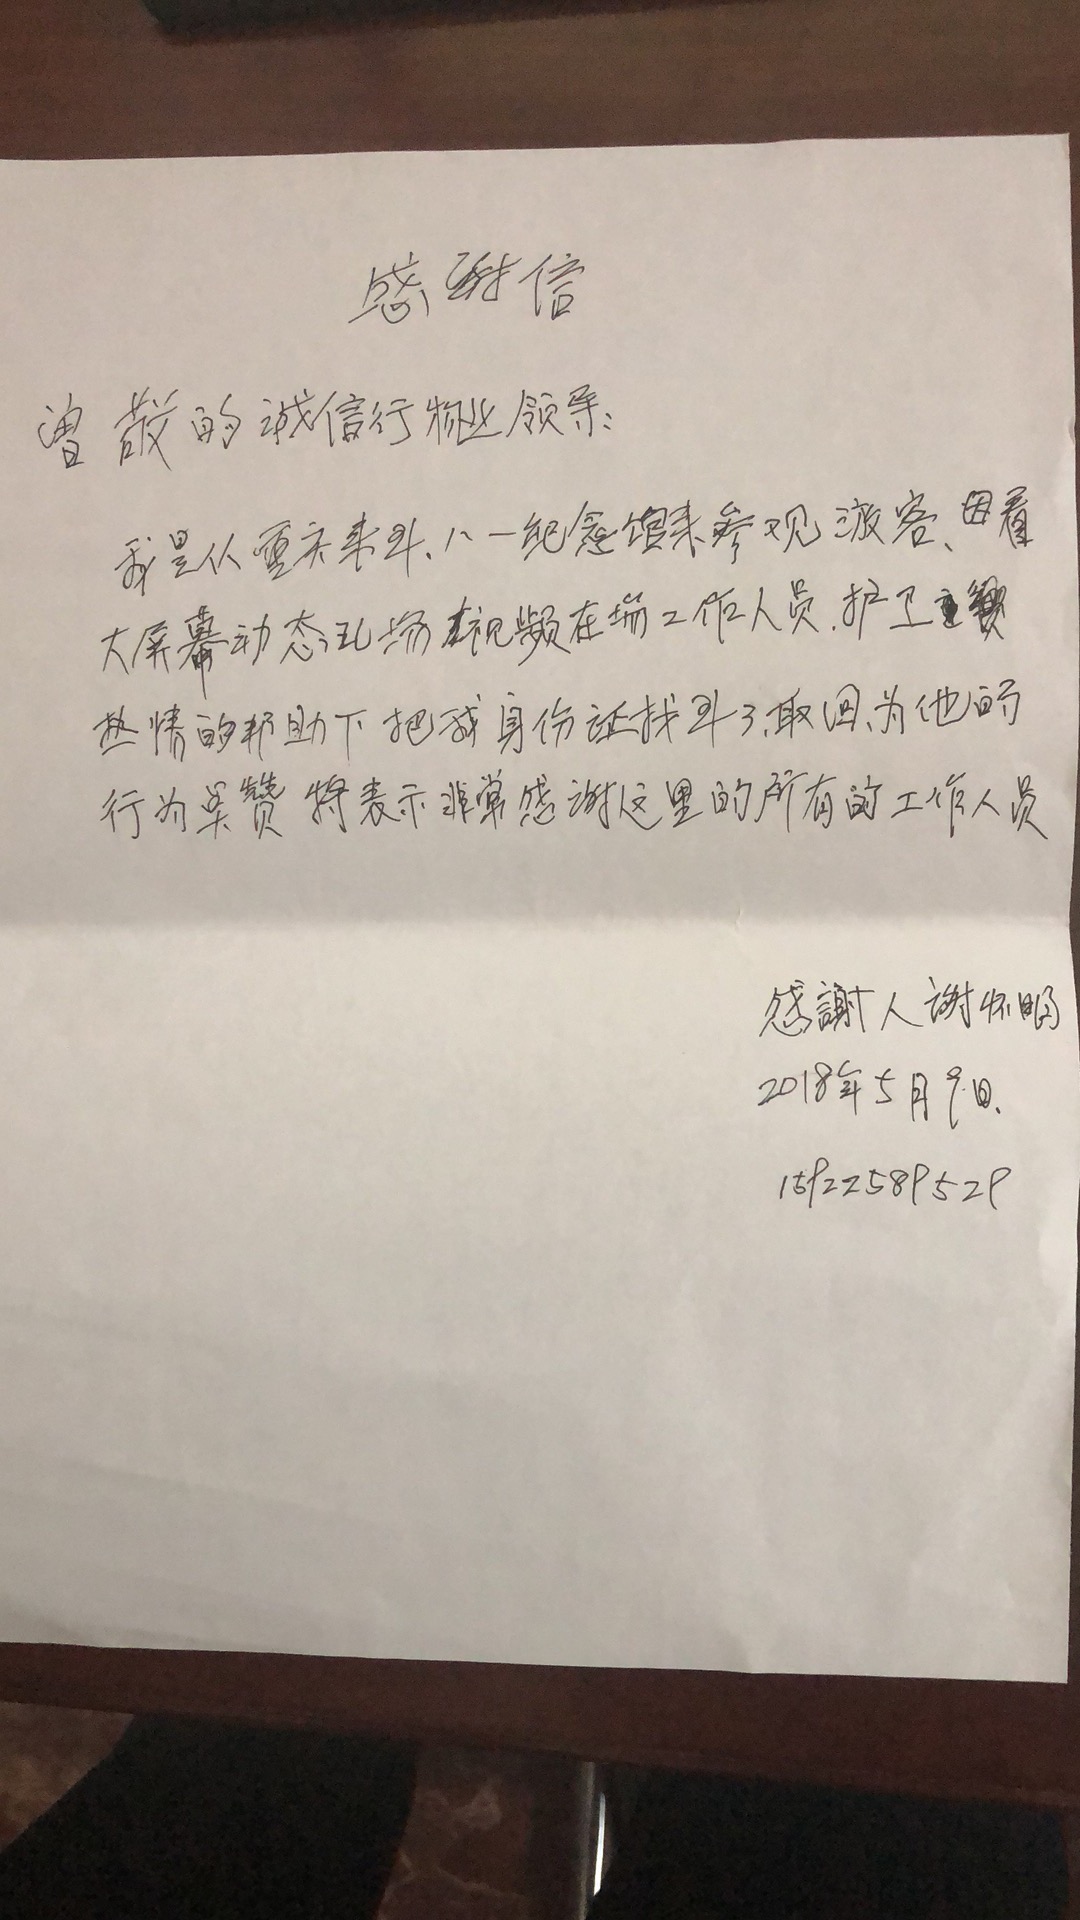 感谢信
曾敬的诚信行物业领导:
我是从重庆来到、八一纪念馆来参观游客、因看
大屏幕动态现场视频在场工作人员.护卫
热情的帮助下把我身份证找到了.取回、为他的
行为点赞 特表示非常感谢这里的所有的工作人员
感謝人谢怀明
2018年5月9日.
15922589529